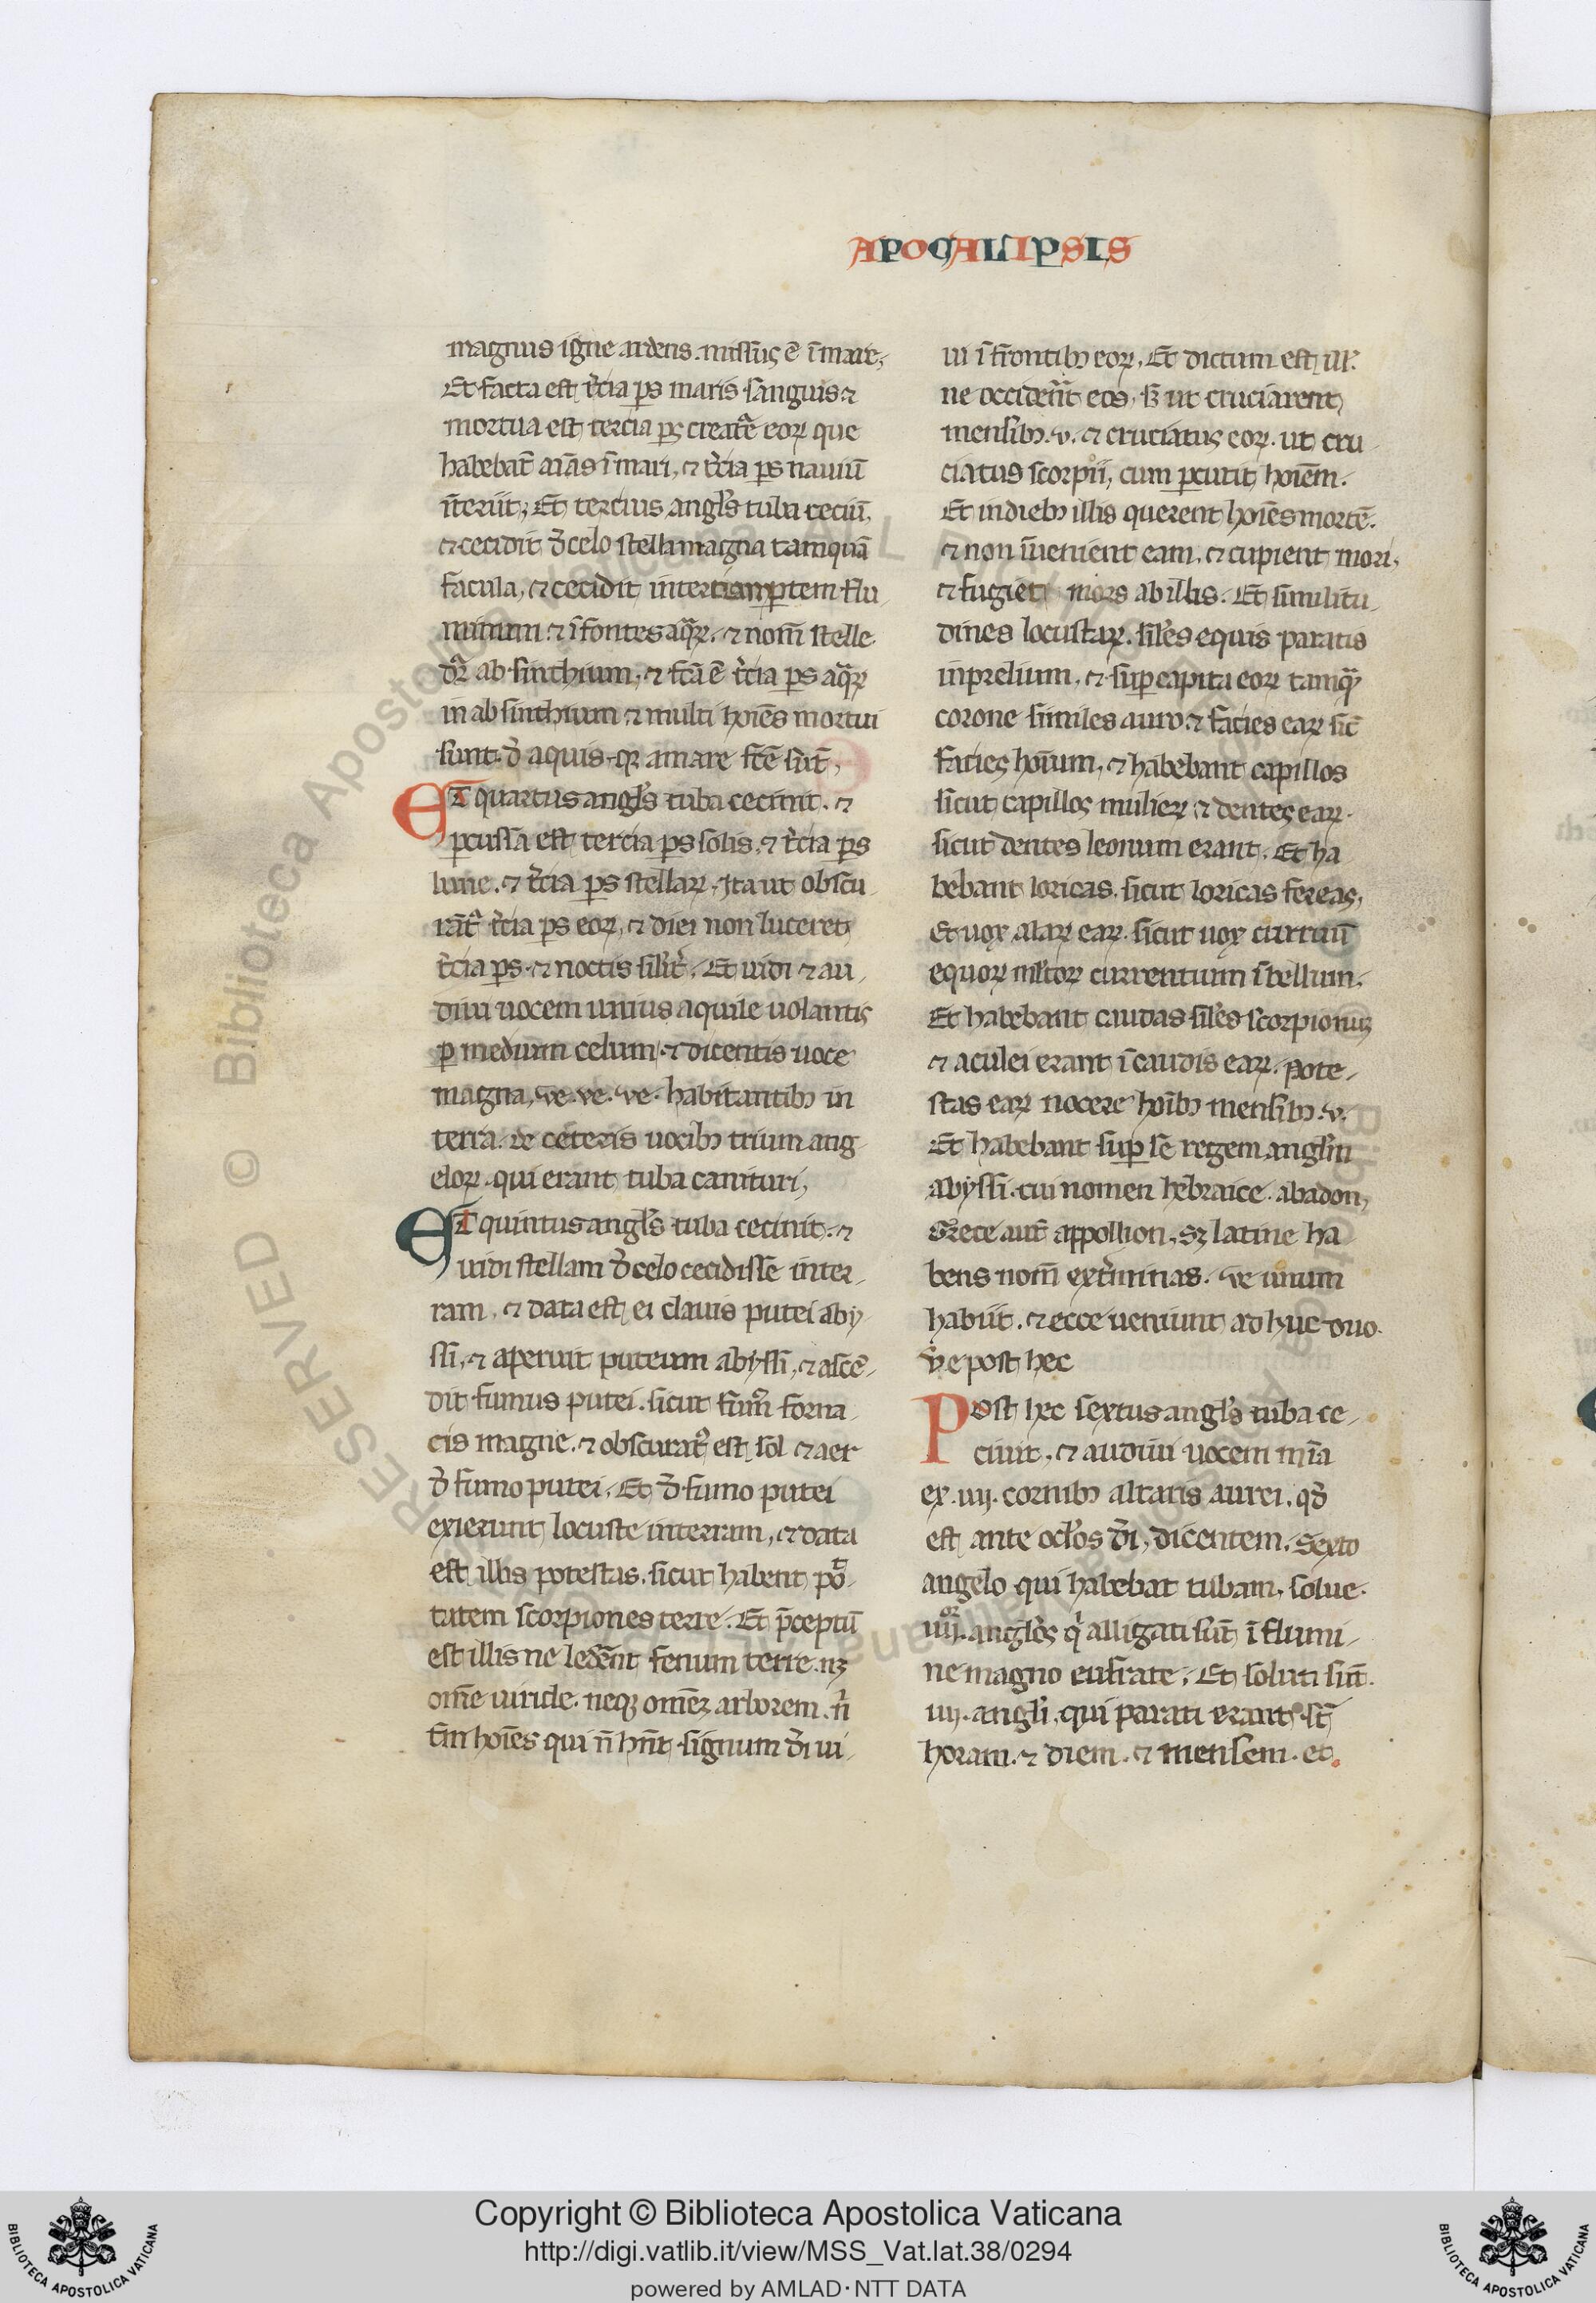 APOCALIPSIS
magnus igne ardens. missus ē ī mare;
Et facta est t̄cia ꝑs maris sanguis ⁊
mortua est tercia ꝑs creat̄e eoꝝ que
habebāt aīas ī mari, ⁊ t̄cia ꝑs nauiū
īteriit; Et tercius angl̄s tuba ceciū,
⁊ cecidit d̄ celo stella magna tamquā
facula, ⁊ cecidit in terciam ꝑtem flu
minum ⁊ ī fontes aqͣꝝ. ⁊ nom̄ stelle
dr̄ ab sinthium. ⁊ fc̄a ē t̄cia ꝑs aqͣꝝ
in ab sinthium ⁊ multi hoīes mortui
sunt. d̄ aquis. qꝛ amare fc̄e sūt,
ET quartus angl̄s tuba cecinit. ⁊
ꝑcussa est tercia ꝑs solis. ⁊ t̄cia ꝑs
lune. ⁊ t̄cia ꝑs stellaꝝ. Ita ut obscu
rāt᷑ t̄cia ꝑs eoꝝ, ⁊ diei non luceret
t̄cia ꝑs. ⁊ noctis sil̄it̄. Et uidi ⁊ au
diui uocem unius aquile uolantis
ꝑ medium celum. ⁊ dicentis uoce
magna, ve. ve. ve. habitantibꝫ in
terra. de ceteris uocibꝫ trium ang
eloꝝ. qui erant tuba canituri,
ET quintus angl̄s tuba cecinit. ⁊
uidi stellam d̄ celo cecidisse in ter
ram, ⁊ data est ei clauis putei aby
ssi, ⁊ aperuit puteum abyssi, ⁊ ascē
dit fumus putei. sicut fum᷒ forna
cis magne. ⁊ obscurat᷒ est sol ⁊ aer
d̄ fumo putei. Et d̄ fumo putei
exierunt locuste in terram, ⁊ data
est illis potestas. sicut habent po
tatem scorpiones terre. Et p̄ceptū
est illis ne led̄ent fenum terre. nꝫ
om̄e uiride. neqꝫ om̄eꝫ arborem. n̄
tm̄ hoīes qui n̄ hn̄t signum d̄i ui
ui ī frontibꝫ eoꝝ. Et dictum est ill᷒
ne occid̄ent eos. sꝫ ut cruciarent
mensibꝫ. v. ⁊ cruciatus eoꝝ. ut cru
ciatus scorpii, cum ꝑcutit hoīem.
Et in diebꝫ illis querent hoīes mortē.
⁊ non īuenient eam, ⁊ cupient mori,
⁊ fugiet mors ab illis. Et similitu
dines locustaꝝ. sil̄es equis paratis
in prelium, ⁊ suꝑ capita eoꝝ tamqͣ
corone similes auro. ⁊ facies eaꝝ sic̄
facies hoīum, ⁊ habebant capillos
sicut capillos mulieꝝ ⁊ dentes eaꝝ.
sicut dentes leonum erant. Et ha
bebant loricas. sicut loricas fereas,
Et uox alaꝝ eaꝝ. sicut uox curruū
equoꝝ ml̄toꝝ currentium ī bellum.
Et habebant caudas sil̄es scorpionuꝫ
⁊ aculei erant ī caudis eaꝝ. Pote
stas eaꝝ nocere hoībꝫ mensibꝫ. v.
Et habebant suꝑ se regem angl̄m
abyssi. cui nomen hebraice. abadon,
Grece aut̄ appollion, Sꝫ latine ha
bens nom̄ ext̄minas. ve unum
habiit. ⁊ ecce ueniunt ad huc duo.
ve post hec
Post hec sextus angl̄s tuba ce
cinit. ⁊ audiui uocem unā
ex. iiij. cornibꝫ altaris aurei. qd̄
est ante ocl̄os d̄i, dicentem. Sexto
angelo qui habebat tubam. solue.
iiij.or angl̄os qͥ alligati sūt ī flumi
ne magno eufrate. Et soluti sūt.
iiij. angl̄i, qui parati erant ⁊
horam. ⁊ diem. ⁊ mensem. et
Copyright © Biblioteca Apostolica Vaticana
http://digi.vatlib.it/view/MSS_Vat.lat.38/0294
powered by AMLAD·NTT DATA
BIBLIOTECA APOSTOLICA VATICANA
BIBLIOTECA APOSTOLICA VATICANA